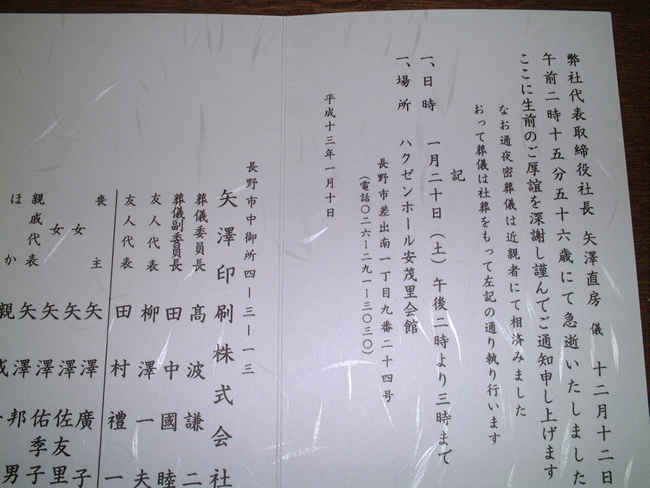 弊社代表取締役社長 矢澤直房 儀 十二月十二日
午前二時十五分五十六歳にて急逝いたしました
ここに生前のご厚誼を深謝し謹んでご通知申し上げます
なお通夜密葬儀は近親者にて相済みました
おって葬儀は社葬をもって左記の通り執り行います
記
一、日時 一月二十日(土)午後二時より三時まで
一、場所 ハクゼンホール安茂里会館
長野市差出南一丁目九番二十四号
(電話〇二六―二九一―三〇三〇)
平成十三年一月十日
長野市中御所四―三―一三
矢澤印刷株式会社
葬儀委員長 高波謙二
葬儀副委員長 田中國睦
友人代表 柳澤一夫
友人代表 田村禮一
喪主 矢澤廣子
女 矢澤佐友里
女 矢澤佑季子
親戚代表 矢澤邦男
ほか 親戚一